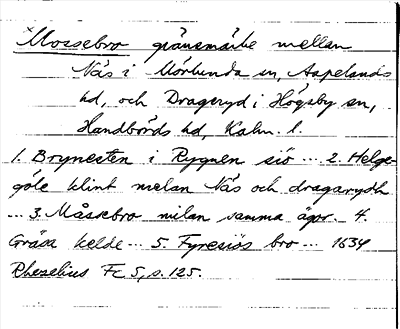 Mossebro gränsmärke mellan
Näs i Mörlunda sn, Aspelands
hd, och Drageryd i Högsby sn,
Handbörds hd, Kalm. l.
1. Brynesten i Rygnen siö ... 2. Helge-
göle klint melan Näs och dragarydh
... 3. Måssebro milan samma ägor ... 4.
Gräsa kelde ... 5. Fyresiös bro ... 1634
Rhezelius Fc 5, s. 125.